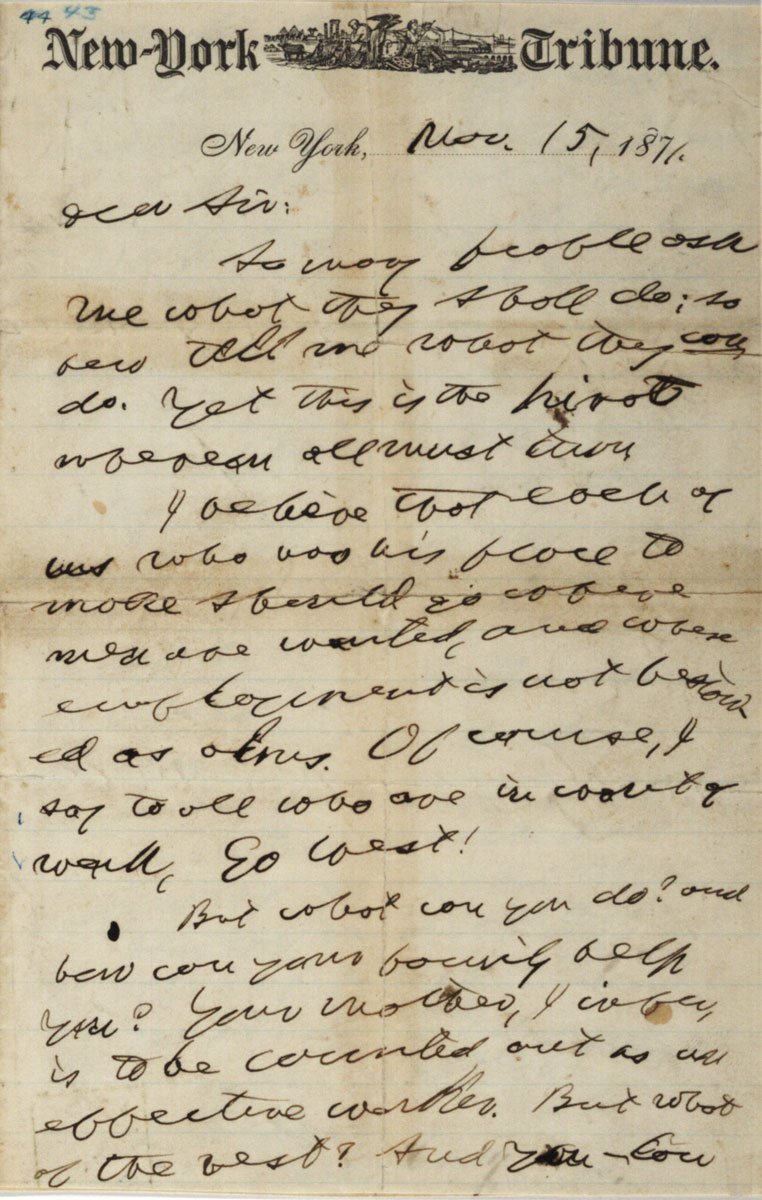 44 43
New-York Tribune.
New York, Nov. 15, 1871.
Dear Sir:
So many people ask
me what they shall do; so
few tell me what they can
do. Yet this is the pivot
wherein all must turn
I believe that each of
us who has his place to
make should go where
men are wanted, and where
employment is not bestow-
ed as alms. Of course, I
say to all who are in want of
work, Go West!
But what can you do? and
how can your family help
you? Your mother, I infer,
is to be counted out as an
effective worker. But what
of the rest? And you - Can